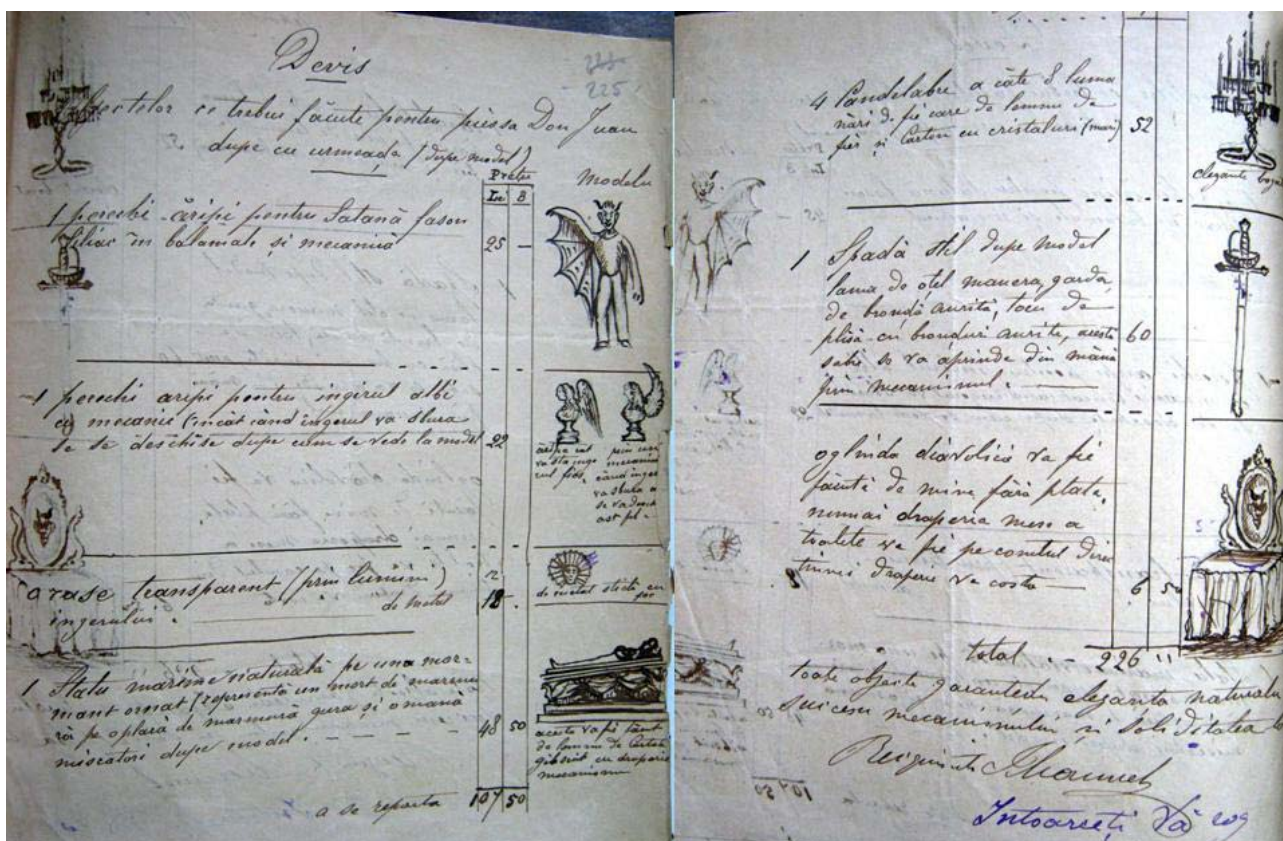 Devis
225
Obiectelor ce trebui făcute pentru piessa Don Juan
dupe cu urmeada (dupe model)
Preţu
Modelu
Lei B
1 perechi aripi pentru Satană fason
liliac în balamale si mecanică 25 —
1 perechi aripi pentru ingerul albi
cu mecanic (incât când ingerul va sbura
se se deschise dupe cum se vede la model 22
când inger
va sbura
transparent (prin lumini)
ingerului. de metal 18
de metal
1 Statu marime naturală pe una mor-
mant ornat (representă un mort de marmu
ră pe o placă de marmură gura și o mană
miscatori dupe model. 48 50
acesta va fi făcut
de lemnu de
mecanismu
a se reporta 107 50
4 Candelabre a câte 8 lumâ
nări d. fie care de lemnu de
fier și Carton cu cristaluri (mari) 52
elegante
1 Spadă stil dupe model
lama de oțel manera, garda,
de brondă aurită, tocu de
plisă cu bronduri aurite, acestă
sabie se va aprinde din mână
prin mecanismul.
60
oglinda diavolică va fi
făcută de mine fără plată,
numai draperia mese a
toalete va fi pe contul direc
tiunei draperie va costa 6 50
total 226 "
toate obiecte garantedu eleganta naturale
sucesu mecanismului și Soliditatea
Intoarceți Vă rog